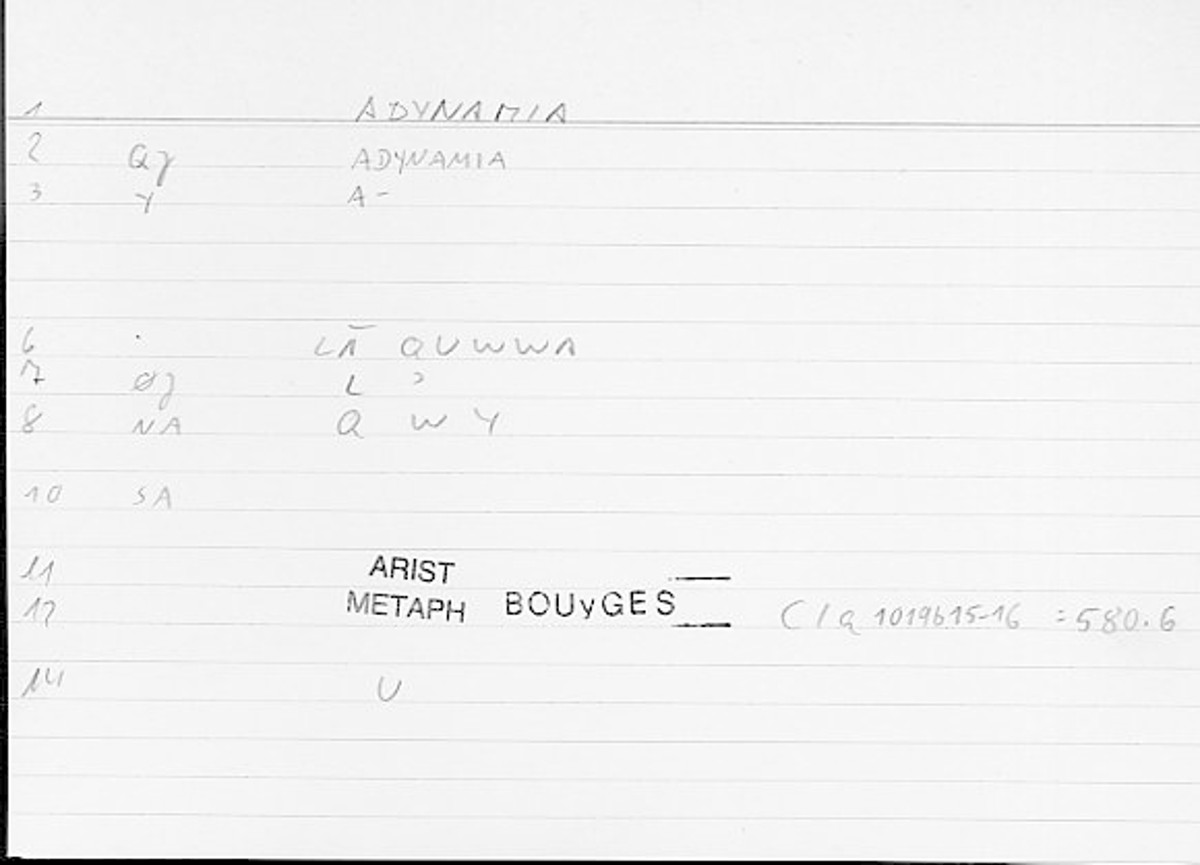 1 ADYNAMIA
2 Qg ADYNAMIA
3 Y A-
6 . LĀ QUWWA
7 Øg L ʾ
8 NA Q W Y
10 SA
11 ARIST
12 METAPH BOUyGES C/q 1019b15-16 =580.6
14 U